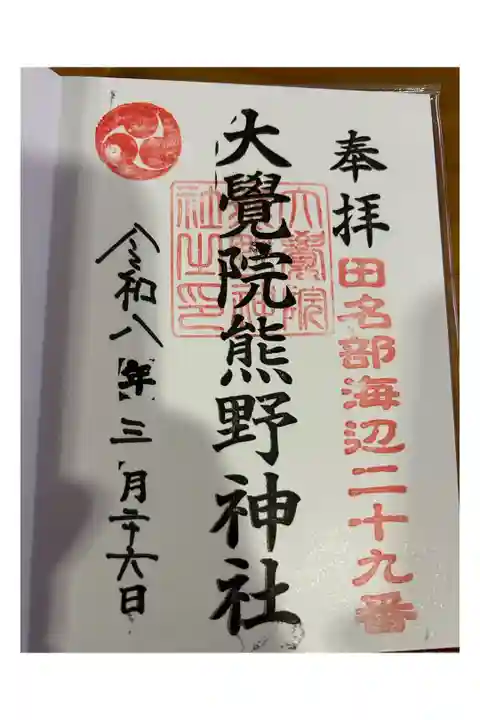 奉拝
田名部海辺二十九番
大覺院熊野神社
大覺院熊野神社之印
令和八年三月廿六日